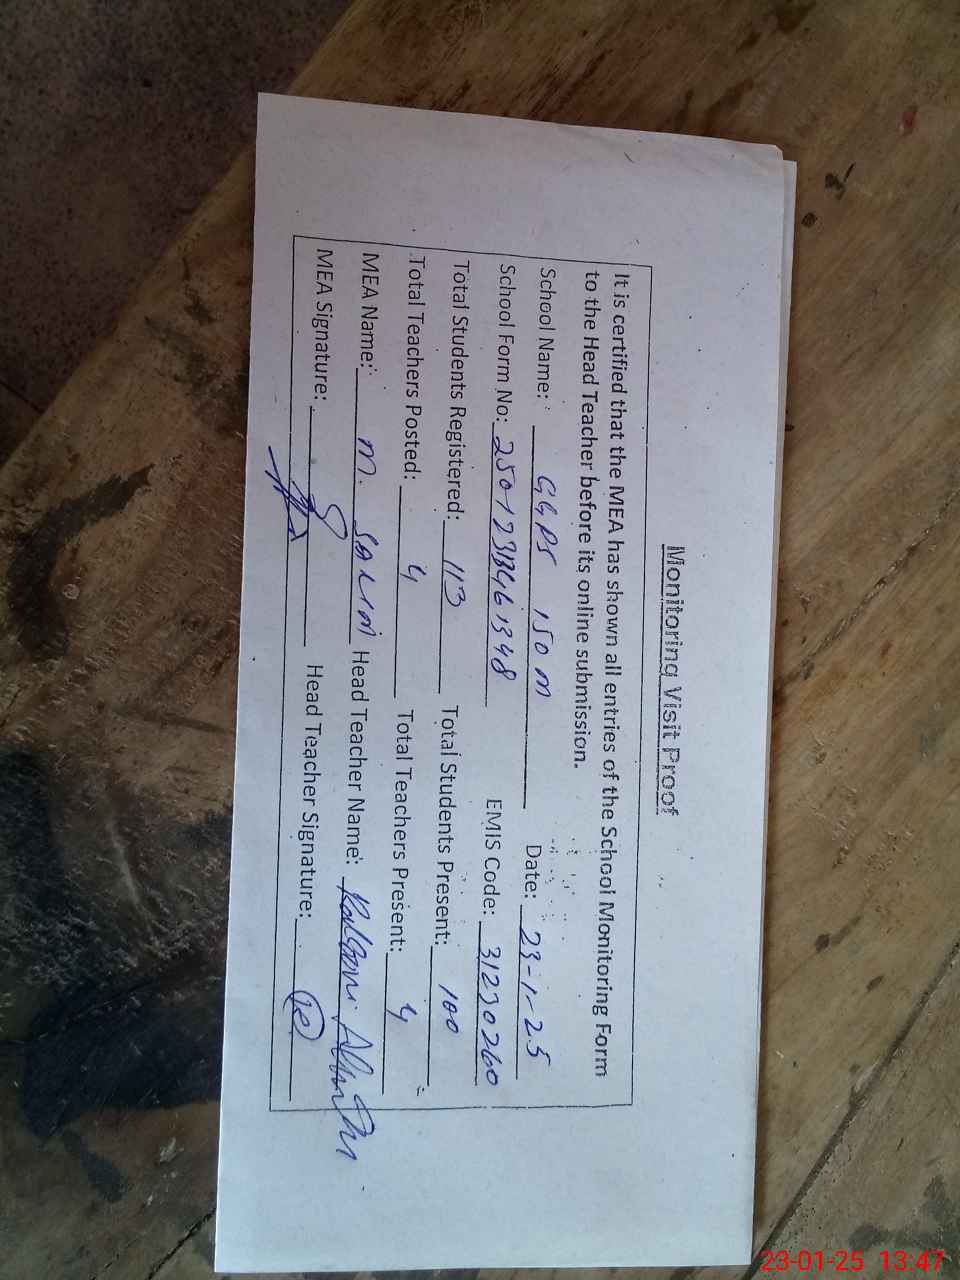 Monitoring Visit Proof
It is certified that the MEA has shown all entries of the School Monitoring Form
to the Head Teacher before its online submission.
School Name: GGPS 150 M Date: 23-1-25
School Form No: EMIS Code: 31230260
Total Students Registered: 113 Total Students Present: 100
Total Teachers Posted: 4 Total Teachers Present: 4
MEA Name: M. Head Teacher Name:
MEA Signature: Head Teacher Signature:
23-01-25 13:47